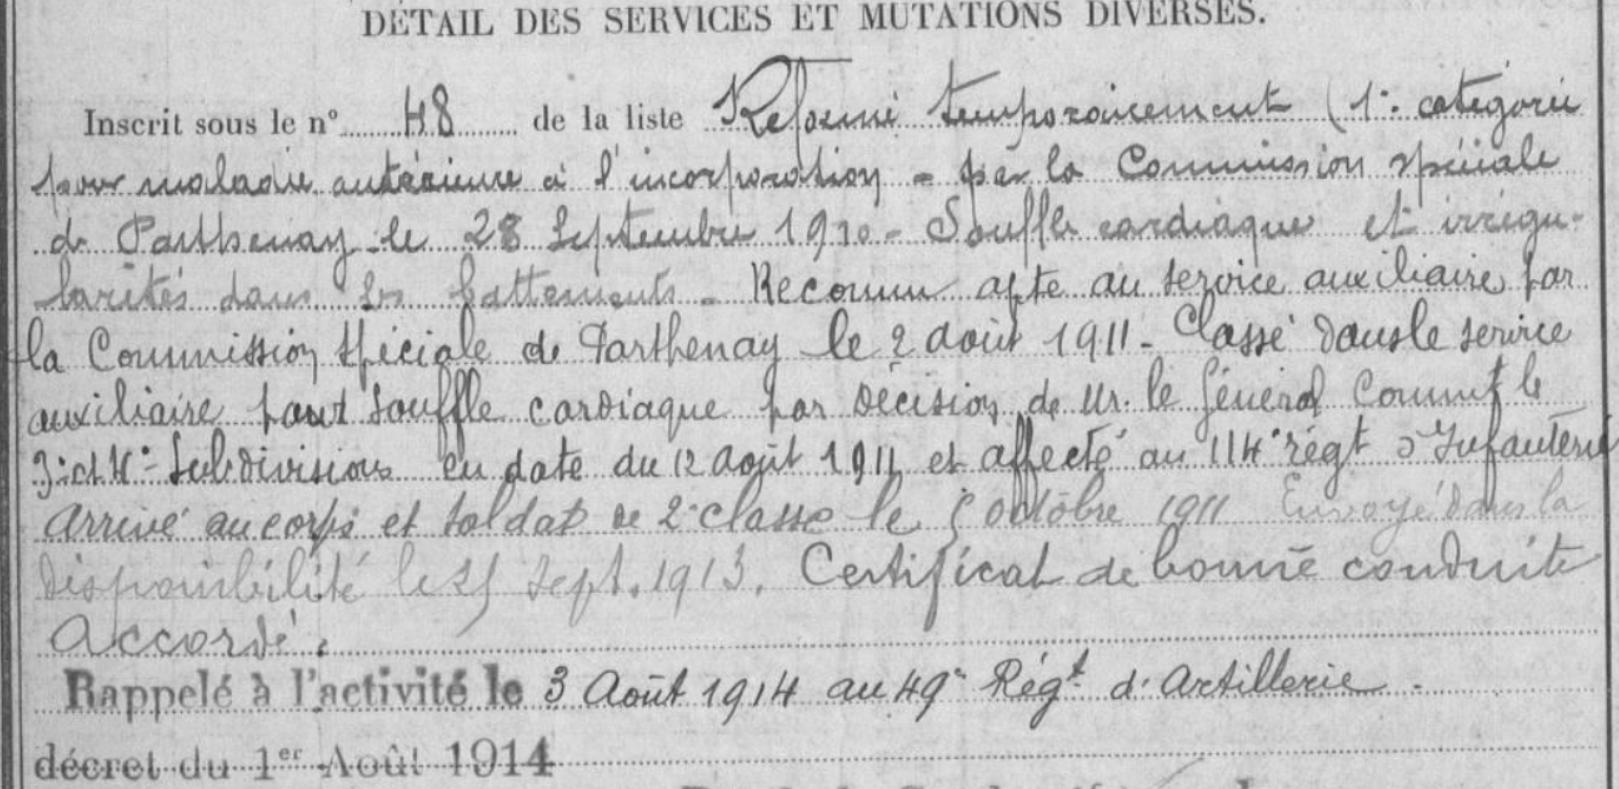 DÉTAIL DES SERVICES ET MUTATIONS DIVERSES.
Inscrit sous le n° 48 de la liste Réformé temporairement (1e. catégorie
pour maladie antérieure à l'incorporation - par la Commission spéciale
de Parthenay le 28 Septembre 1910 - Souffle cardiaque et irrégu-
larités dans les battements - Reconnu apte au service auxiliaire par
la Commission spéciale de Parthenay le 2 août 1911 - Classé dans le service
auxiliaire pour souffle cardiaque par décision de Mr. le Général Commdt le
3e et 4e Subdivisions en date du 12 août 1911 et affecté au 114e régt d'Infanterie
Arrivé au corps et soldat de 2e classe le 5 octobre 1911 Envoyé dans la
disponibilité le 25 sept. 1913. Certificat de bonne conduite
Accordé.
Rappelé à l'activité le 3 Août 1914 au 49e Régt d'Artillerie.
décret du 1er Août 1914